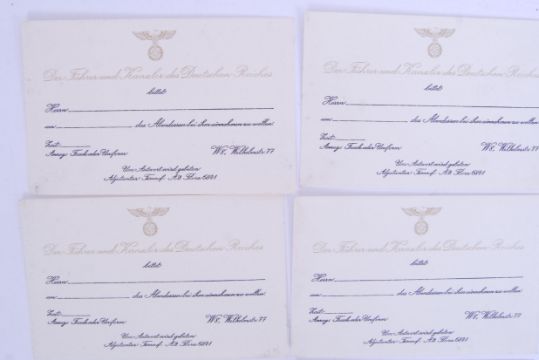 Der Führer und Kanzler des Deutschen Reiches
bittet
Herrn
um das Abendessen bei ihm einnehmen zu wollen
Zeit:
Anzug: Frack oder Uniform W8, Wilhelmstr. 77
Um Antwort wird gebeten
Adjutantur: Fernspr. A2 Flora 6841
Der Führer und Kanzler des Deutschen Reiches
bittet
Herrn
das Abendessen bei ihm einnehmen zu wollen
Zeit:
Anzug: Frack oder Uniform W8, Wilhelmstr. 77
Um Antwort wird gebeten
Adjutantur: Fernspr. A2 Flora 6841
Der Führer und Kanzler des Deutschen Reiches
bittet
Herrn
das Abendessen bei ihm einnehmen zu wollen
Zeit:
Anzug: Frack oder Uniform W8, Wilhelmstr. 77
Um Antwort wird gebeten
Adjutantur: Fernspr. A2 Flora 6841
Der Führer und Kanzler des Deutschen Reiches
bittet
Herrn
das Abendessen bei ihm einnehmen zu wollen
Zeit:
Anzug: Frack oder Uniform W8, Wilhelmstr. 77
Um Antwort wird gebeten
Adjutantur: Fernspr. A2 Flora 6841